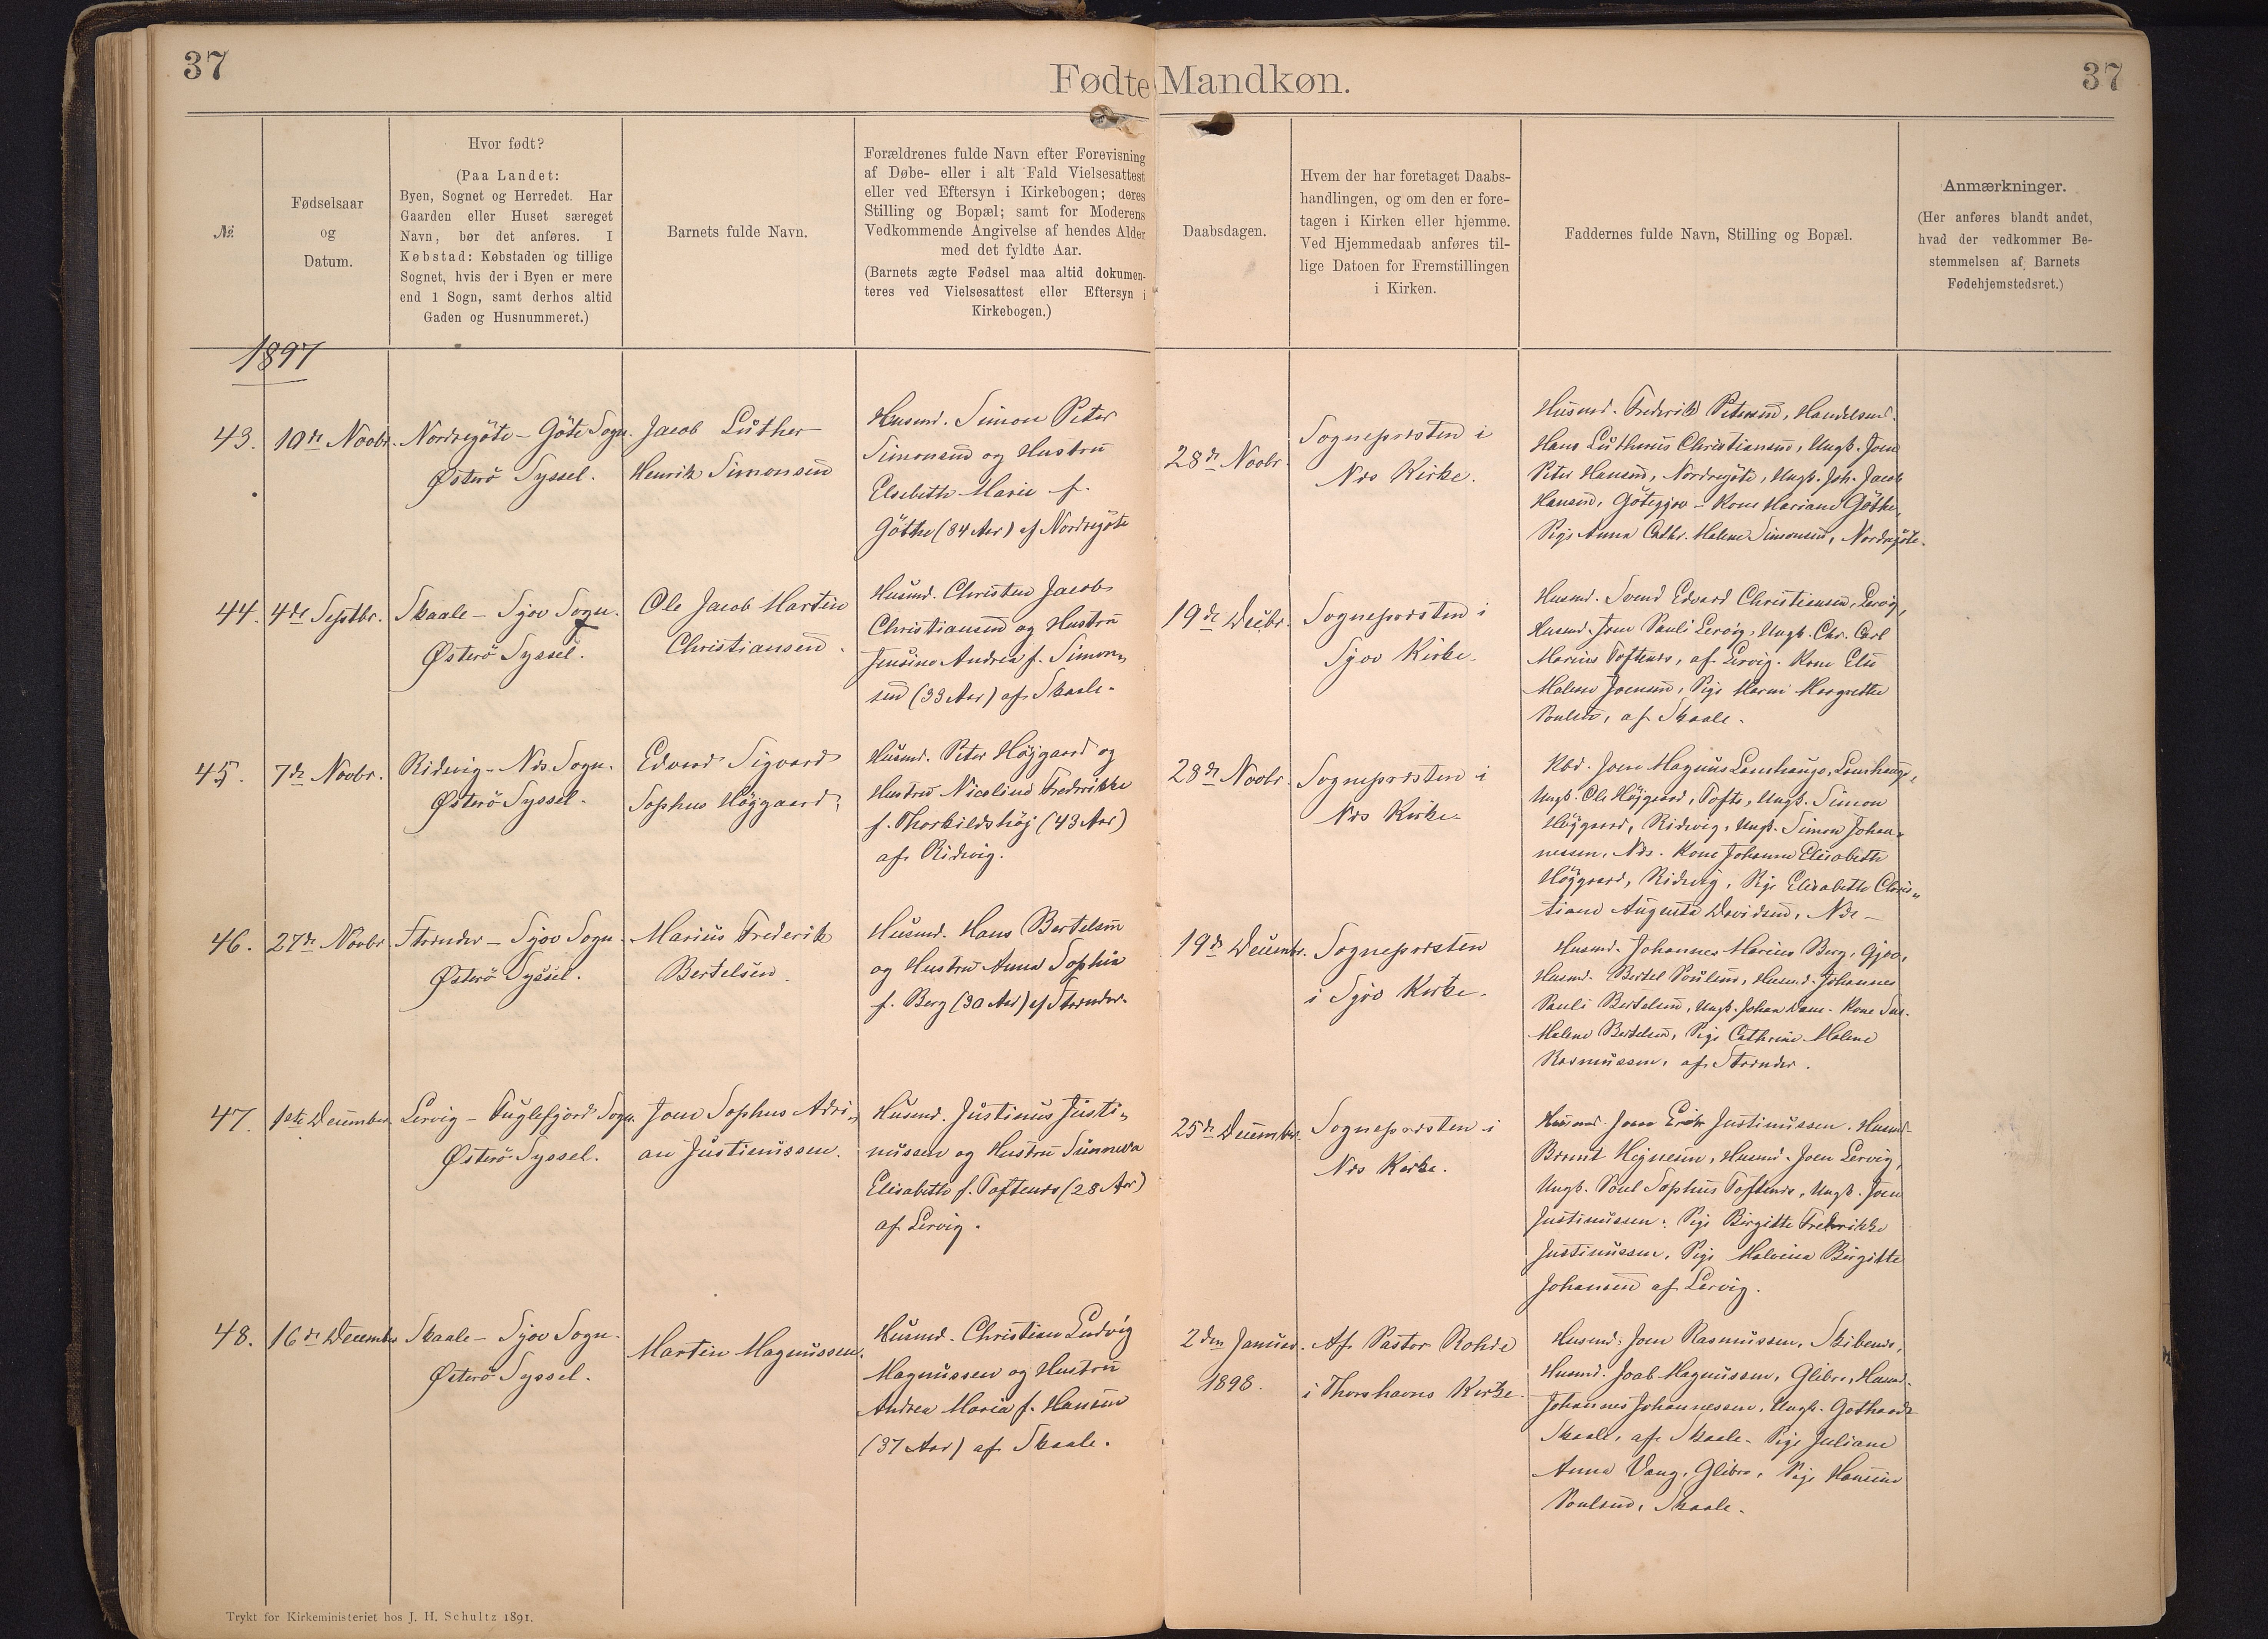 37
Fødte Mandkøn.
37
№
Fødselsaar
og
Datum.
Hvor født?
(Paa Landet:
Byen, Sognet og Herredet. Har
Gaarden eller Huset særeget
Navn, bør det anføres. I
Købstad: Købstaden og tillige
Sognet, hvis der i Byen er mere
end 1 Sogn, samt derhos altid
Gaden og Husnummeret.)
Barnets fulde Navn.
Forældrenes fulde Navn efter Forevisning
af Døbe- eller i alt Fald Vielsesattest
eller ved Eftersyn i Kirkebogen; deres
Stilling og Bopæl; samt for Moderens
Vedkommende Angivelse af hendes Alder
med det fyldte Aar.
(Barnets ægte Fødsel maa altid dokumen-
teres ved Vielsesattest eller Eftersyn i
Kirkebogen.)
Daabsdagen.
Hvem der har foretaget Daabs-
handlingen, og om den er fore-
tagen i Kirken eller hjemme.
Ved Hjemmedaab anføres til-
lige Datoen for Fremstillingen
i Kirken.
Faddernes fulde Navn, Stilling og Bopæl.
Anmærkninger.
(Her anføres blandt andet,
hvad der vedkommer Be-
stemmelsen af Barnets
Fødehjemstedsret.)
1897
43.
10de Novbr.
Nordregöte - Göte Sogn.
Østerö Syssel.
Jacob Luther
Henrik Simonsen
Husmd. Simon Peter
Simonsen og Hustru
Elsebeth Marie f.
Göthe (34 Aar) af Nordregöte
28de Novbr.
Sognepræsten i
Næs Kirke.
Husmd. Frederik Petersen, Handelsmd.
Hans Luthenus Christiansen, Ungk. Joen
Peter Hansen, Nordregöte, Ungk. Joh. Jacob
Hansen, Götegjov - Kone Mariane Göthe,
Pige Anna Cathr. Malene Simonsen, Nordregöte.
44.
4de Septbr.
Skaale - Sjov Sogn.
Østerö Syssel.
Ole Jacob Martin
Christiansen.
Husmd. Christen Jacob
Christiansen og Hustru
Jensine Andrea f. Simon-
sen (33 Aar) af Skaale.
19de Decbr.
Sognepræsten i
Sjov Kirke.
Husmd. Svend Edvard Christiansen, Lervig,
Husmd. Joen Pauli Lervig, Ungk. Chr. Carl
Marius Toftenæs, af Lervig. Kone Else
Malene Joensen, Pige Marni Margrethe
Poulsen, af Skaale.
45.
7de Novbr.
Ridevig - Næs Sogn.
Østerö Syssel.
Edvard Sigvard
Sophus Højgaard.
Husmd. Peter Højgaard og
Hustru Nicoline Frederikke
f. Thorkildshøj (43 Aar)
af Ridevig.
28de Novbr.
Sognepræsten i
Næs Kirke.
Kbd. Joen Magnus Lamhauge, Lamhauge,
Ungk. Ole Højgaard, Tofte, Ungk. Simon
Højgaard, Ridevig, Ungk. Simon Johan-
nessen, Næs. Kone Johanne Elisabeth
Højgaard, Ridevig, Pige Elisabeth Chris-
tiane Augusta Davidsen, Næs -
46.
27de Novbr.
Strænder - Sjov Sogn.
Østerö Syssel.
Marius Frederik
Bertelsen.
Husmd. Hans Bertelsen
og Hustru Anna Sophia
f. Berg (30 Aar) af Strænder.
19de Decembr.
Sognepræsten
i Sjov Kirke.
Husmd. Johannes Marius Berg, Gjov,
Husmd. Bertel Poulsen, Husmd. Johannes
Pauli Bertelsen, Ungk. Johan Dam - Kone Sus.
Malene Bertelsen, Pige Cathrine Malene
Rasmussen, af Strænder.
47.
1ste December.
Lervig - Fuglefjord Sogn.
Østerö Syssel.
Joen Sophus Adri-
an Justinussen.
Husmd. Justinus Justi-
nussen og Hustru Sunneva
Elisabeth f. Toftenæs (28 Aar)
af Lervig.
25de December.
Sognepræsten i
Næs Kirke.
Husmd. Joen Erik Justinussen, Husmd.
Hejnesen, Husmd. Joen Lervig,
Ungk. Poul Sophus Toftenæs, Ungk. Joen
Justinussen. Pige Birgitte Frederikke
Justinussen, Pige Malvina Birgitte
Johansen af Lervig.
48.
16de Decembr.
Skaale - Sjov Sogn.
Østerö Syssel.
Martin Magnussen.
Husmd. Christian Ludvig
Magnussen og Hustru
Andrea Maria f. Hansen
(37 Aar) af Skaale.
2den Januar.
1898.
Af Pastor Rohde
i Thorshavns Kirke.
Husmd. Joen Rasmussen, Skibenæs,
Husmd. Joab Magnussen, Glibre, Husmd.
Johannes Johannessen, Ungk. Gothardt
Skaale, af Skaale. Pige Juliane
Anna Vang, Glibre, Pige Hansine
Poulsen, Skaale.
Trykt for Kirkeministeriet hos J. H. Schultz 1891.